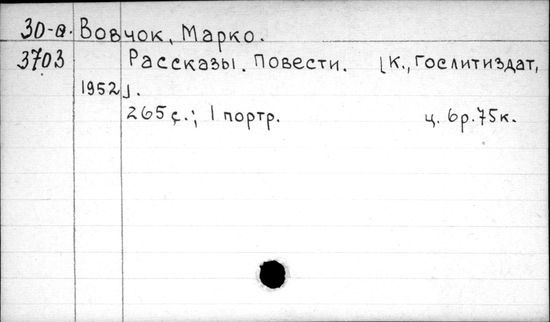 30-а. Вовчок, Марко.
3703 Рассказы. Повести. [К., Гослитиздат,
1952].
265 с.; 1 портр. ц. 6р.75к.